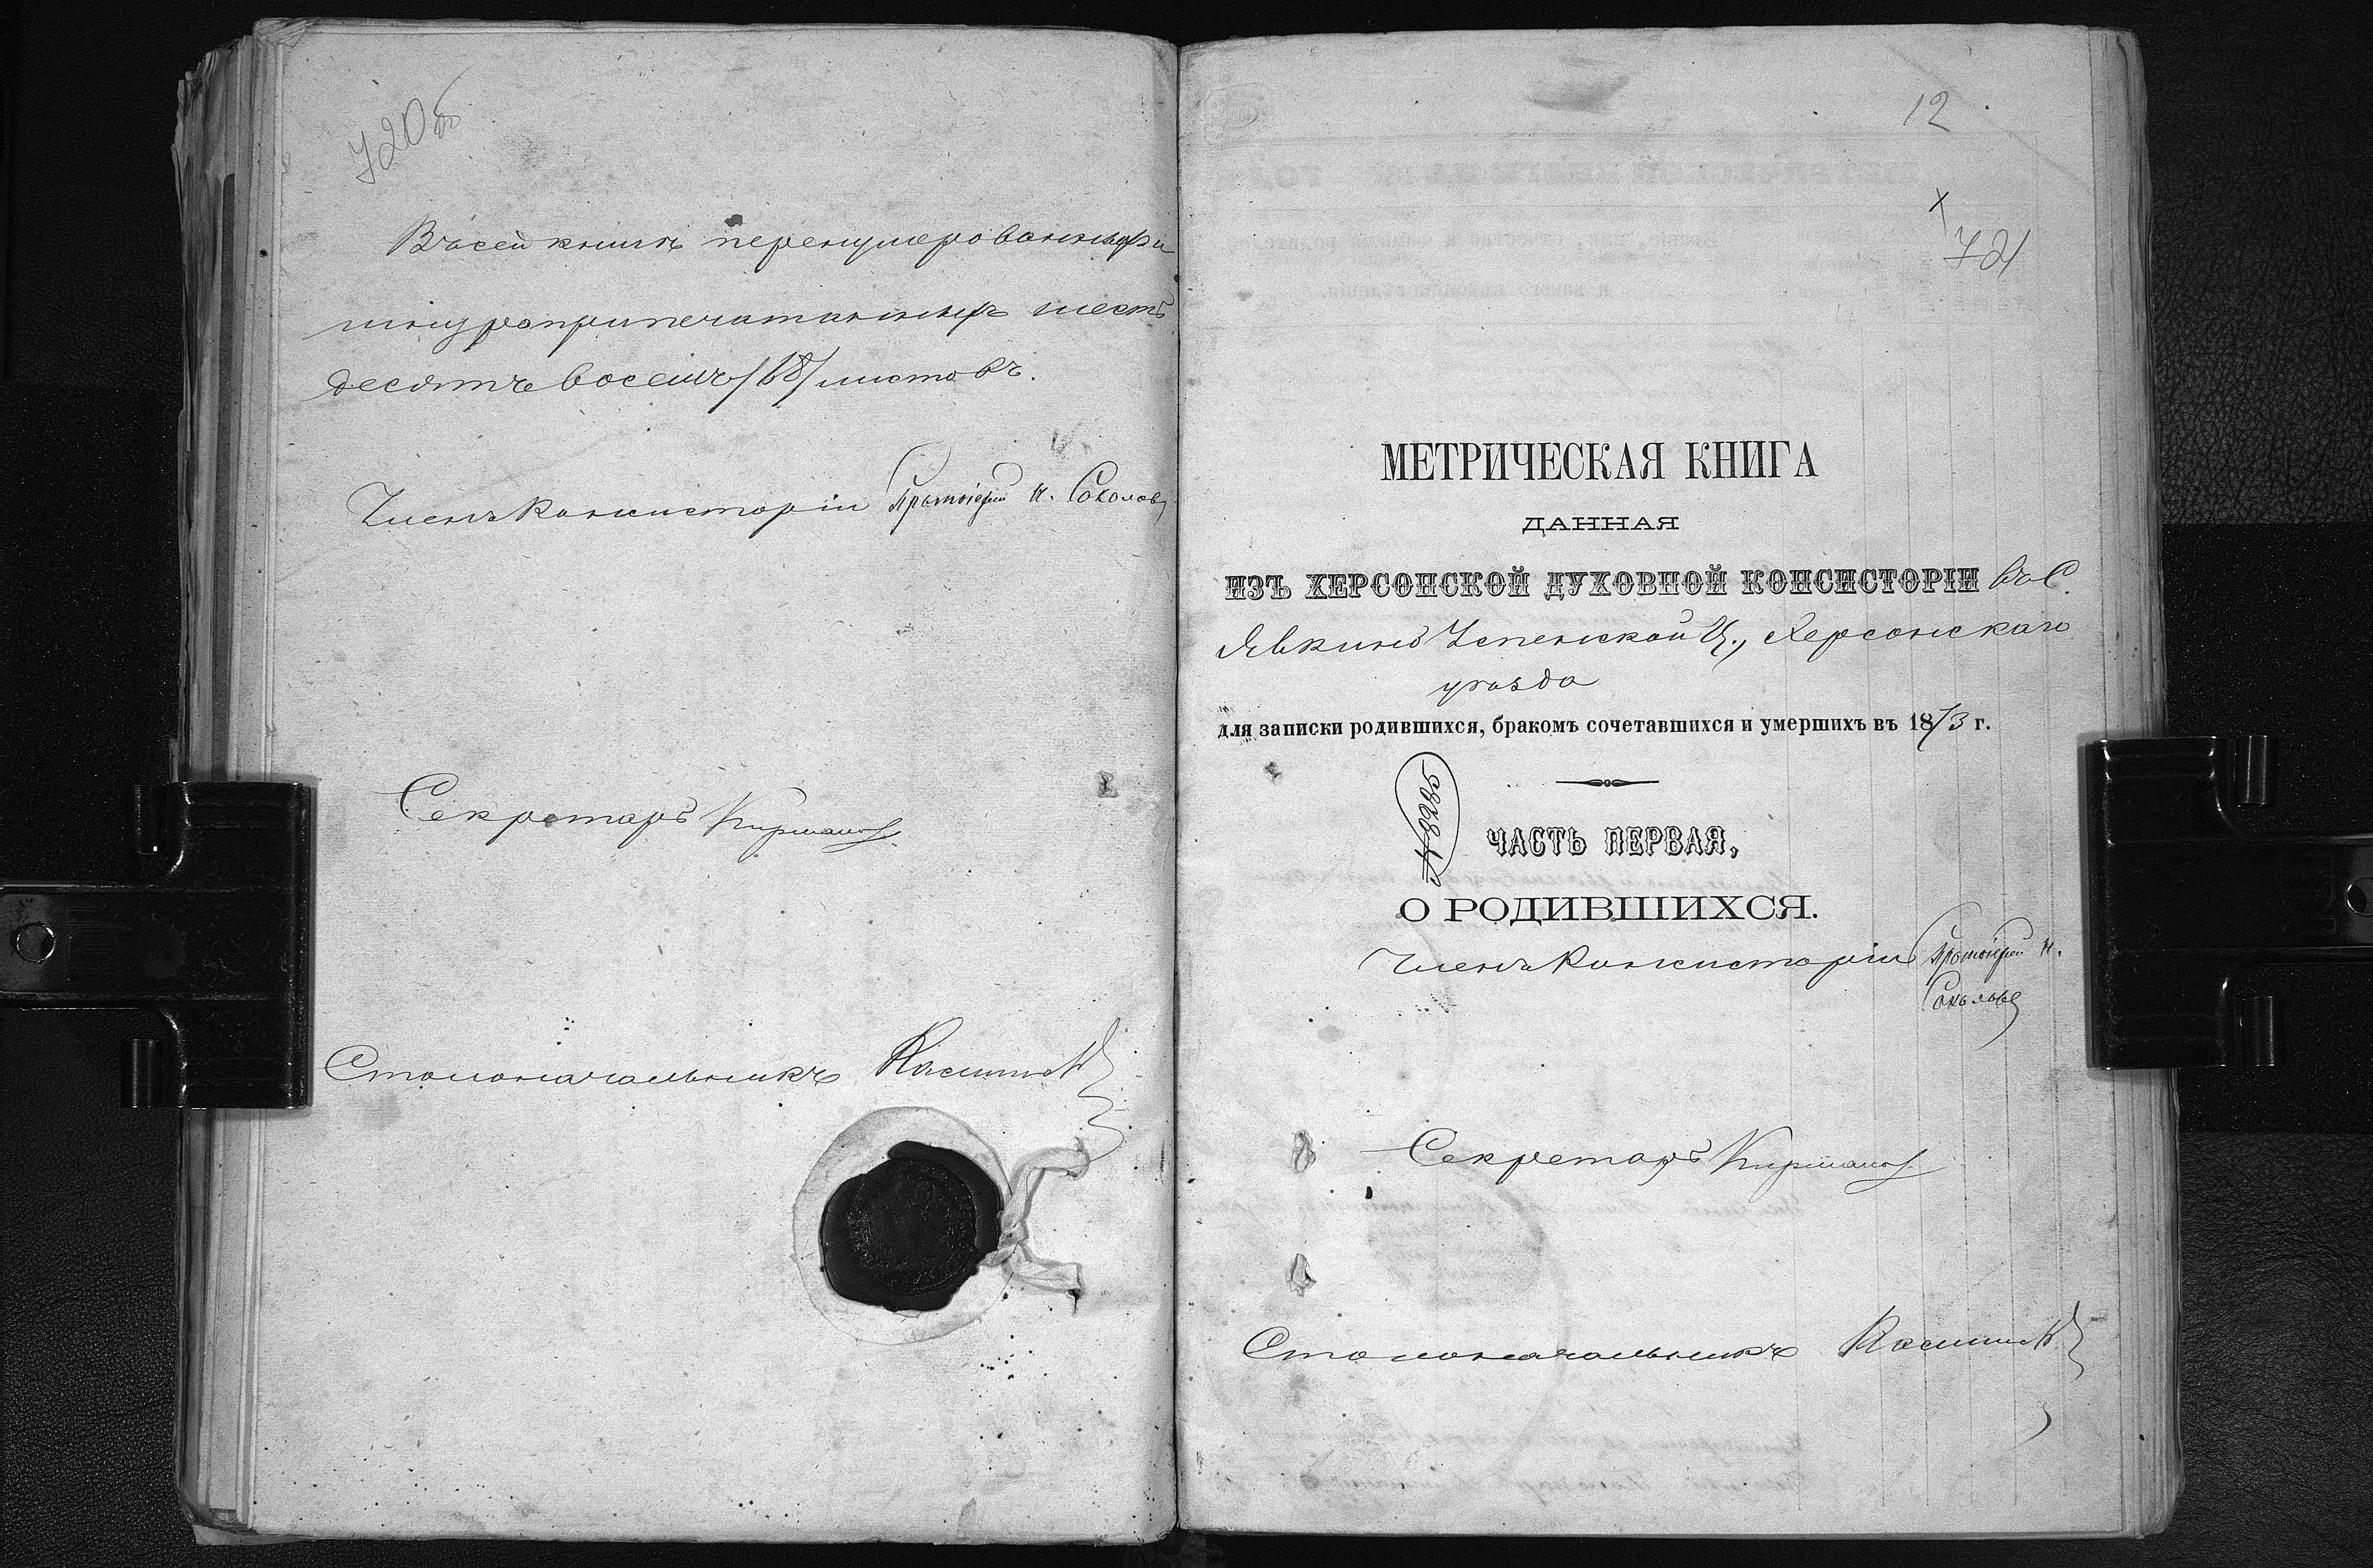 720об
Въ сей книгѣ перенумерованныхъ и
шнуроприпечатанныхъ шесть
десятъ восемь /68/ листовъ.
Членъ Консисторіи Протоіерей Н. Соколовъ
Секретарь
Столоначальникъ
12
721
МЕТРИЧЕСКАЯ КНИГА
ДАННАЯ
ИЗЪ ХЕРСОНСКОЙ ДУХОВНОЙ КОНСИСТОРІИ въ С.
Явкино Успенской Ц., Херсонскаго
уѣзда
для записки родившихся, бракомъ сочетавшихся и умершихъ въ 1873 г.
ЧАСТЬ ПЕРВАЯ,
О РОДИВШИХСЯ.
Членъ Консисторіи Протоіерей Н.
Соколовъ
Секретарь
Столоначальникъ